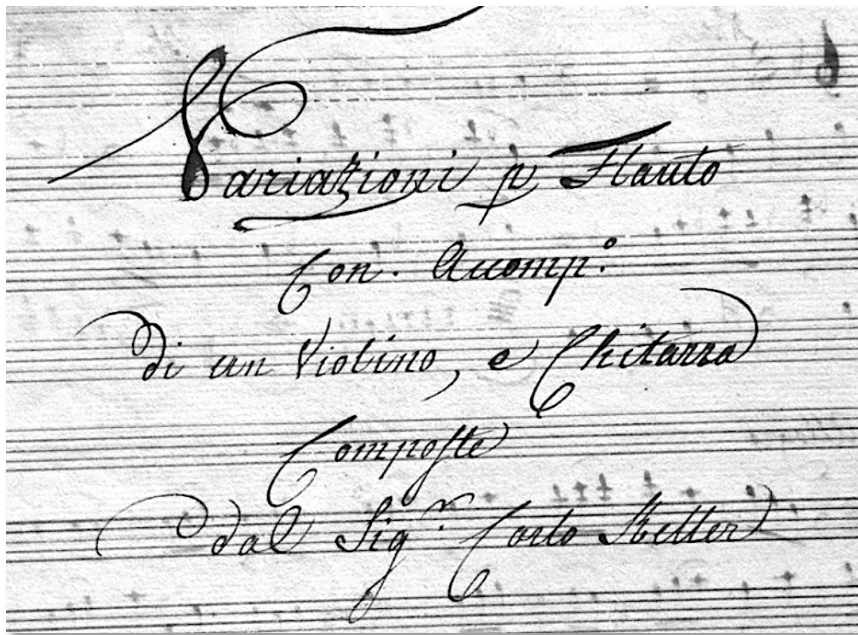 Variazioni p Flauto
Con. Acomp.°
di un Violino, e Chitarra
Composte
dal Sig.r Carlo